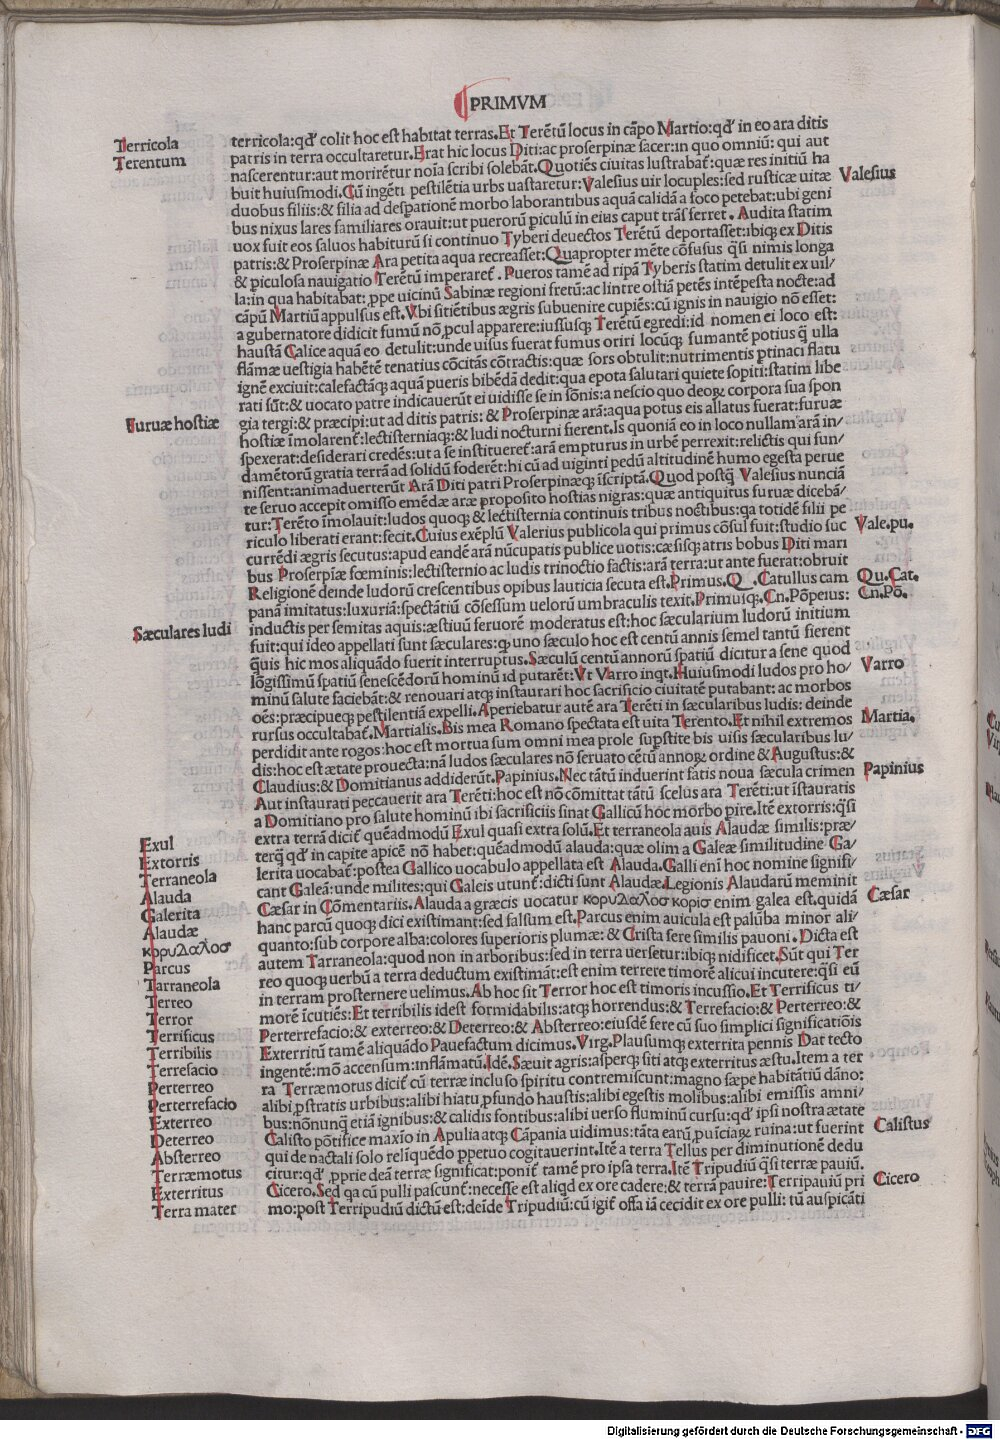 PRIMVM
Terricola
Terentum
Furuæ hostiæ
Sæculares ludi
Exul
Extorris
Terraneola
Alauda
Galerita
Alaudæ
κορυδαλοσ
Parcus
Tarraneola
Terreo
Terror
Terrificus
Terribilis
Terrefacio
Perterreo
Perterrefacio
Exterreo
Deterreo
Absterreo
Terræmotus
Exterritus
Terra mater
terricola:qđ colit hoc est habitat terras.Et Terētū locus in cāpo Martio:qđ in eo ara ditis
patris in terra occultaretur.Erat hic locus Diti:ac proserpinæ sacer:in quo omniū: qui aut
nascerentur:aut morirētur noīa scribi solebāt.Quotiēs ciuitas lustrabat̄: quæ res initiū ha
buit huiusmodi.Cū ingēti pestilētia urbs uastaretur:Valesius uir locuples:sed rusticæ uitæ
duobus filiis:& filia ad despationē morbo laborantibus aquā calidā a foco petebat:ubi geni
bus nixus lares familiares orauit:ut puerorū piculū in eius caput trāsferret. Audita statim
uox fuit eos saluos habiturū si continuo Tyberi deuectos Terētū deportasset:ibiq; ex Ditis
patris:& Proserpinæ Ara petita aqua recreasset:Quapropter mēte cōfusus q̄si nimis longa
& piculosa nauigatio Terētū imperaret̄. Pueros tamē ad ripā Tyberis statim detulit ex uil/
la:in qua habitabat: ppe uicinū Sabinæ regioni fretū:ac lintre ostiā petēs intēpesta nocte:ad
cāpū Martiū appulsus est.Vbi sitiētibus ægris subuenire cupiēs:cū ignis in nauigio nō esset:
a gubernatore didicit fumū nō pcul apparere:iussusq; Terētū egredi:id nomen ei loco est:
haustā Calice aquā eo detulit:unde uisus fuerat fumus oriri locūq; fumantē potius q̄ ulla
flāmæ uestigia habētē tenatius cōcitās cōtractis:quæ sors obtulit:nutrimentis ptinaci flatu
ignē exciuit:calefactāq; aquā pueris bibēdā dedit:qua epota salutari quiete sopiti:statim libe
rati sūt:& uocato patre indicauerūt ei uidisse se in sōnis:a nescio quo deoꝝ corpora sua spon
gia tergi:& præcipi:ut ad ditis patris: & Proserpinæ arā:aqua potus eis allatus fuerat:furuæ
hostiæ īmolarent̄:lectisterniaq;:& ludi nocturni fierent.Is quoniā eo in loco nullam arā in/
spexerat:desiderari credēs:ut a se institueret̄:arā empturus in urbē perrexit:relictis qui fun/
damētorū gratia terrā ad solidū foderēt:hi cū ad uiginti pedū altitudinē humo egesta perue
nissent:animaduerterūt Arā Diti patri Proserpinæq; īscriptā.Quod postq̄ Valesius nunciā
te seruo accepit omisso emēdæ aræ proposito hostias nigras:quæ antiquitus furuæ dicebā/
tur:Terēto īmolauit:ludos quoq; & lectisternia continuis tribus noctibus:qa totidē filii pe
riculo liberati erant:fecit.Cuius exēplū Valerius publicola qui primus cōsul fuit:studio suc
currēdi ægris secutus:apud eandē arā nūcupatis publice uotis:cæsisq; atris bobus Diti mari
bus Proserpīæ fœminis:lectisternio ac ludis trinoctio factis:arā terra:ut ante fuerat:obruit
Religionē deinde ludorū crescentibus opibus lauticia secuta est.Primus.Q. Catullus cam
panā imitatus:luxuriā:spectātiū cōsessum uelorū umbraculis texit.Primuiq;.Cn.Pōpeius:
inductis per semitas aquis:æstiuū feruorē moderatus est:hoc sæcularium ludorū initium
fuit:qui ideo appellati sunt sæculares:q uno sæculo hoc est centū annis semel tantū fierent
q̄uis hic mos aliquādo fuerit interruptus.Sæculū centū annorū spatiū dicitur a sene quod
lōgissimū spatiū senescēdorū hominū id putarēt:Vt Varro inqt.Huiusmodi ludos pro ho/
minū salute faciebāt:& renouari atq; instaurari hoc sacrificio ciuitatē putabant: ac morbos
oēs:præcipueq; pestilentiā expelli.Aperiebatur autē ara Terēti in sæcularibus ludis: deinde
rursus occultabat̄.Martialis.Bis mea Romano spectata est uita Terento.Et nihil extremos
perdidit ante rogos:hoc est mortua sum omni mea prole supstite bis uisis sæcularibus lu/
dis:hoc est ætate prouecta:nā ludos sæculares nō seruato cētū annoꝝ ordine & Augustus:&
Claudius:& Domitianus addiderūt.Papinius.Nec tātū induerint fatis noua sæcula crimen
Aut instaurati peccauerit ara Terēti:hoc est nō cōmittat tātū scelus ara Terēti:ut īstauratis
a Domitiano pro salute hominū ibi sacrificiis sinat Gallicū hoc morbo pire.Itē extorris:q̄si
extra terrā dicit̄ quēadmodū Exul quasi extra solū.Et terraneola auis Alaudæ similis:præ/
terq̄ qđ in capite apicē nō habet:quēadmodū alauda:quæ olim a Galeæ similitudine Ga/
lerita uocabat̄:postea Gallico uocabulo appellata est Alauda.Galli enī hoc nomine signifi/
cant Galeā:unde milites:qui Galeis utunt̄:dicti sunt Alaudæ.Legionis Alaudatū meminit
Cæsar in Cōmentariis.Alauda a græcis uocatur κορυδαλοσ κορισ enim galea est.quidā
hanc parcū quoq; dici existimant:sed falsum est.Parcus enim auicula est palūba minor ali/
quanto:sub corpore alba:colores superioris plumæ:& Crista fere similis pauoni.Dicta est
autem Tarraneola:quod non in arboribus:sed in terra uersetur:ibiq; nidificet.Sūt qui Ter
reo quoq; uerbū a terra deductum existimāt:est enim terrere timorē alicui incutere:q̄si eū
in terram prosternere uelimus.Ab hoc sit Terror hoc est timoris incussio.Et Terrificus ti/
morē īcutiēs:Et terribilis idest formidabilis:atq; horrendus:& Terrefacio:& Perterreo:&
Perterrefacio:& exterreo:& Deterreo:& Absterreo:eiusdē fere cū suo simplici significatiōis
Exterritū tamē aliquādo Pauefactum dicimus.Virg.Plausumq; exterrita pennis Dat tecto
ingentē:mō accensum:inflāmatū.Idē.Sæuit agris:asperq; siti atq; exterritus æstu.Item a ter
ra Terræmotus dicit̄ cū terræ incluso spiritu contremiscunt:magno sæpe habitātiū dāno:
alibi pstratis urbibus:alibi hiatu pfundo haustis:alibi egestis molibus:alibi emissis amni/
bus:nōnunq̄ etiā ignibus:& calidis fontibus:alibi uerso fluminū cursu:qđ ipsi nostra ætate
Calisto pōtifice maxīo in Apulia atq; Cāpania uidimus:tāta earū puīciaꝝ ruina:ut fuerint
qui de nactali solo relīquēdo ppetuo cogitauerint.Itē a terra Tellus per diminutionē dedu
citur:qđ pprie deā terræ significat:ponit̄ tamē pro ipsa terra.Itē Tripudiū q̄si terræ pauiū.
Cicero.Sed qa cū pulli pascunt̄:necesse est aliqd ex ore cadere:& terrā pauire:Terripauiū pri
mo:post Terripudiū dictū est:deīde Tripudiū:cū igit̄ offa īā cecidit ex ore pulli: tū auspicāti
Valesius
Vale.pu.
Qu.Cat.
Cn.Pō.
Varro
Martia.
Papinius
Cæsar
Calistus
Cicero
Digitalisierung gefördert durch die Deutsche Forschungsgemeinschaft - DFG